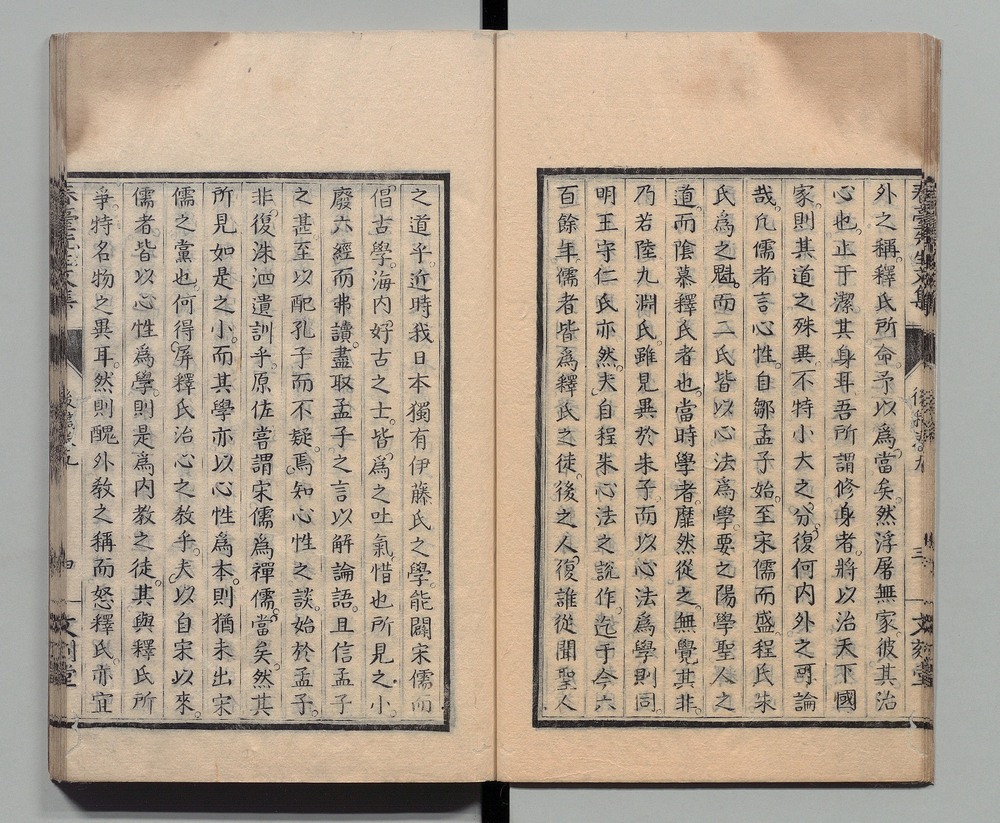 外之稱釋氏所命予以爲當矣然浮屠無家彼其治
心也止于潔其身耳吾所謂修身者將以治天下國
家則其道之殊異不特小大之分復何内外之可論
哉凡儒者言心性自鄒孟子始至宋儒而盛程氏朱
氏爲之魁而二氏皆以心法爲學要之陽學聖人之
道而陰慕釋氏者也當時學者靡然從之無覺其非
乃若陸九淵氏雖見異於朱子而以心法爲學則同
明王守仁氏亦然夫自程朱心法之說作迄于今六
百餘年儒者皆爲釋氏之徒後之人復誰從聞聖人
三
文刻堂
之道乎近時我日本獨有伊藤氏之學能闢宋儒而
倡古學海内好古之士皆爲之吐氣惜也所見之小
廢六經而弗讀盡取孟子之言以解論語且信孟子
之甚至以配孔子而不疑焉知心性之談始於孟子
非復洙泗遺訓乎原佐嘗謂宋儒爲禪儒當矣然其
所見如是之小而其學亦以心性爲本則猶未出宋
儒之黨也何得屏釋氏治心之教乎夫以自宋以來
儒者皆以心性爲學則是爲内教之徒其與釋氏所
爭特名物之異耳然則醜外教之稱而怒釋氏亦宜